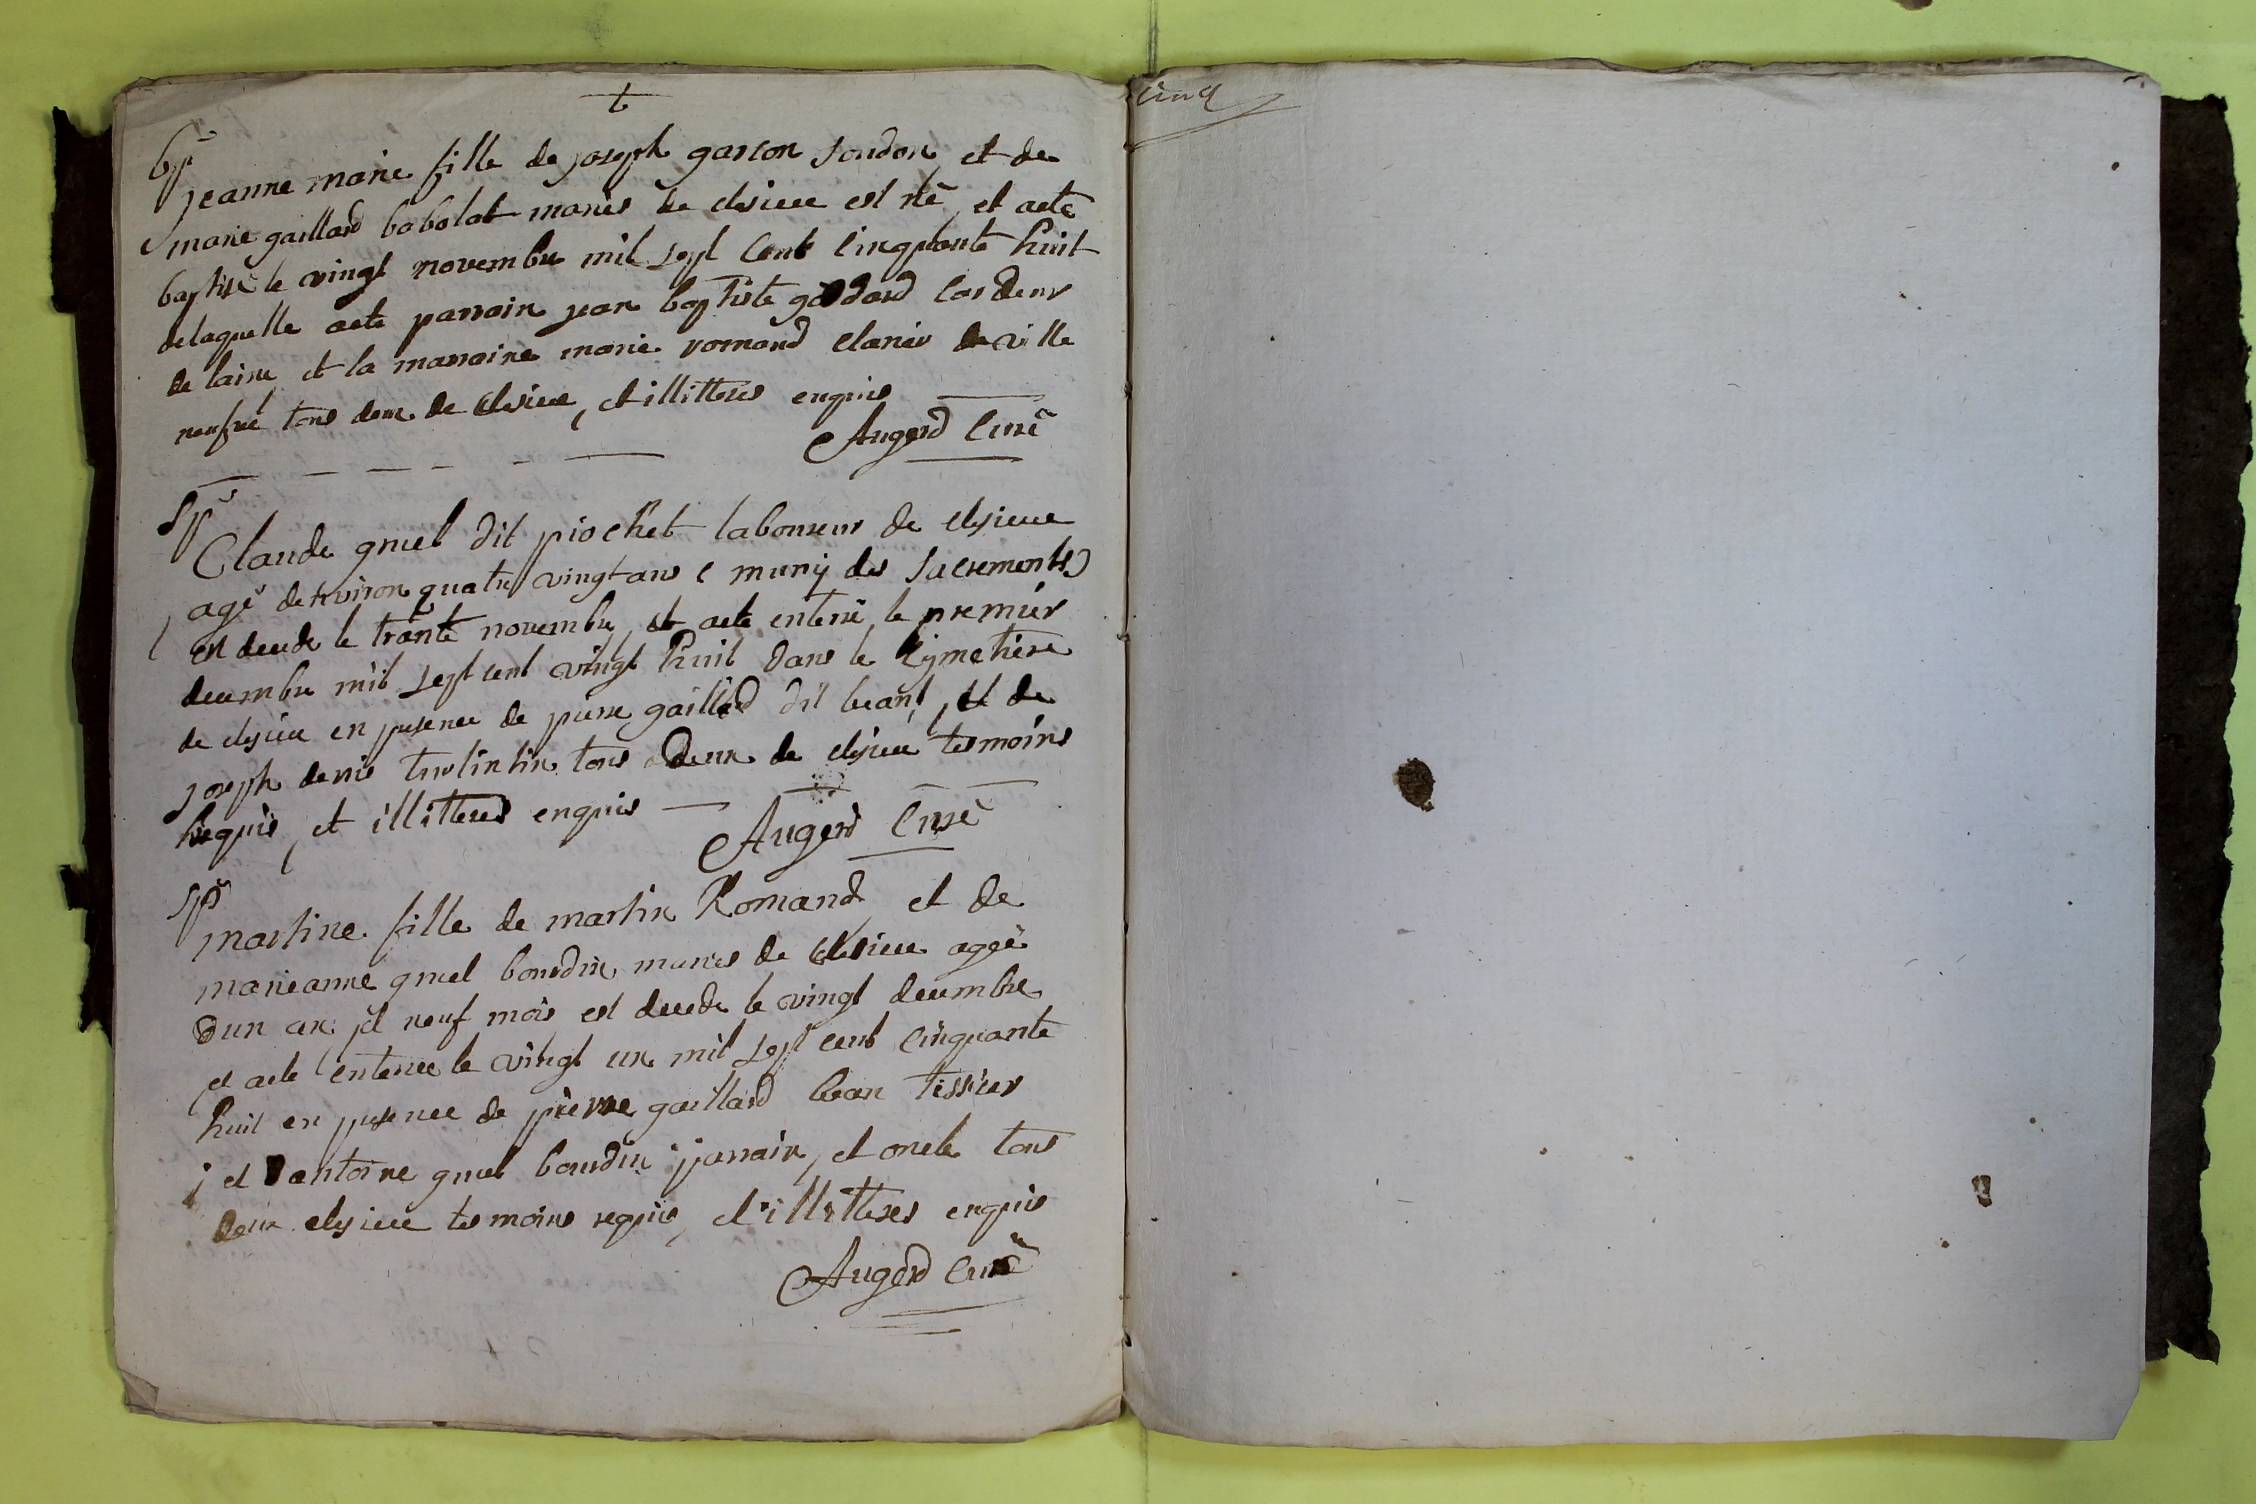 t
bp
jeanne marie fille de joseph garcon et de
marie gaillard babolat mariés de cleisieu est né et aeté
baptisé le vingt novembre mil sept cent cinquante huit
delaquelle aeté parrain jean baptiste goddard cardeur
de laine et la marraine marie romand de ville
neufve tous deux de cleisieu, et illitteres enquis
Augerd Curé
Sp
Claude gruel dit piochet laboureur de cleisieu
agé denviron quatre vingt ans (muny des Sacrements)
est decede le trante novembre, et aeté enterré le premier
decembre mil sept cent vingt huit dans le cymetiere
de cleisieu en presence de pierre gaillard dit et de
joseph denis tous deux de cleisieu tesmoins
requis, et illitteres enquis
Augerd Curé
Sp
martine fille de martin Romand et de
marieanne gruel bourdin maries de cleisieu aggé
dun an et neuf mois est decede le vingt decembre
et aeté enterree le vingt un mil sept cent cinquante
huit en presence de pierre gaillard tissier
et antoine gruel bourdin parrain, et oncle tous
deux cleysieu tesmoins requis, et illitteres enquis
Augerd Curé
cinq